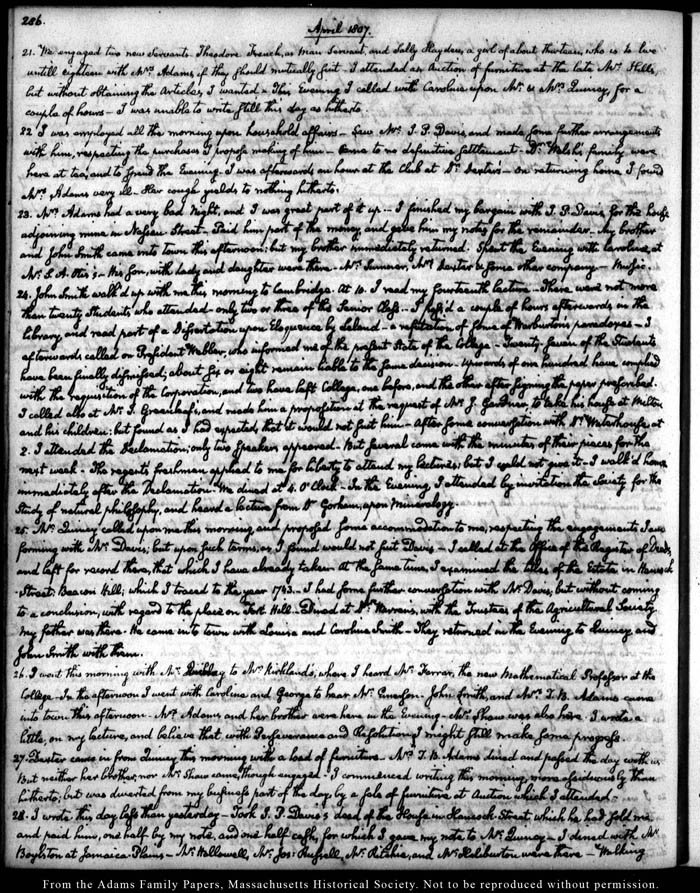 286.
April 1807.
21. We engaged two new Servants Theodore French, as Man Servant, and Sally Hayden, a girl of about thirteen, who is to live
untill eighteen with Mrs Adams, if they should mutually suit - I attended an Auction of furniture at the late Mrs Hills,
but without obtaining the Articles, I wanted - This Evening I called with Caroline upon Mr. & Mrs Quincy, for a
couple of hours - I was unable to write still this day as hitherto
22. I was employed all the morning upon household affairs - Saw Mr. I. P. Davis, and made some further arrangements
with him, respecting the purchases I propose making of him - Came to no definitive settlement - Dr. Welsh's family were
here at tea, and to spend the Evening - I was afterwards an hour at the Club at Dr. Dexter's - On returning home, I found
Mrs Adams very ill - Her cough yields to nothing hitherto.
23. Mrs Adams had a very bad Night, and I was great part of it up - I finished my bargain with I. P. Davis for the house
adjoining mine in Nassau Street - Paid him part of the money, and gave him my notes for the remainder - My brother
and John Smith came into town this afternoon: but my brother immediately returned. Spent the Evening with Caroline, at
Mr. S. A. Otis's - His Son, with lady and daughter were there - Mrs Sumner, Mrs Dexter & some other company - Music.
24. John Smith walk'd up with me this morning to Cambridge. At 10. I read my fourteenth lecture - There were not more
than twenty Students who attended - only two or three of the Senior Class - I pass'd a couple of hours afterwards in the
library and read part of a Dissertation upon Eloquence by Leland - a refutation of some of Warburton's paradoxes - I
afterwards called on President Webber, who informed me of the present State of the College - Twenty-seven of the Students
have been finally dismissed; about six or eight remain liable to the same decision - Upwards of one hundred have complied
with the requisition of the Corporation, and two have left College, one before, and the other after signing the paper prescribed.
I called also at Mr. T. Greenleaf's, and made him a proposition at the request of Mr. J. Gardner to take his house at Milton
and his children: but found as I had expected, that it would not suit him - After some conversation with Dr Waterhouse, at
2. I attended the Declamation; only two speakers appeared. But several came with the minutes of their pieces for the
next week - The regent's freshman, applied to me for liberty to attend my lectures; but I could not give it - I walk'd home
immediately after the Declamation. We dined at 4. O'Clock - In the Evening, I attended by invitation the Society for the
Study of natural philosophy, and heard a lecture from Dr Gorham, upon Mineralogy.
25. Mr. Quincy called upon me this morning, and proposed some accommodation to me, respecting the engagements I am
forming with Mr. Davis; but upon such terms, as I found would not suit Davis - I called at the Office of the Register of Deeds,
and left for record there, that which I have already taken - at the same time, I examined the titles of the Estate in Hancock
Street: Beacon Hill; which I traced to the year 1743. - I had some further conversation with Mr. Davis, but without coming
to a conclusion, with regard to the place on Fort Hill - Dined at Dr. Warren's, with the Trustees of the Agricultural Society.
My father was there - He came into town with Louisa and Caroline Smith - They returned in the Evening to Quincy and
John Smith with them.
26. I went this morning with Mr. to Mr. Kirkland's, where I heard Mr. Farrar, the new Mathematical Professor at the
College - In the afternoon I went with Caroline and George to hear Mr. Emerson - John Smith, and Mrs. T. B. Adams came
into town this afternoon - Mrs Adams and her brother were here in the Evening - Mr. Shaw was also here. I wrote a
little, on my lecture, and believe that with Perseverance and Resolution I might still make some progress.
27. Baxter came in from Quincy this morning with a load of furniture. Mrs T. B. Adams dined and passed the day with us
But neither her brother, nor Mr. Shaw came, though engaged - I commenced writing this morning, more assiduously than
hitherto; but was diverted from my business part of the day, by a sale of furniture at Auction, which I attended -
28. I wrote this day less than yesterday - Took I. P. Davis's deed of the House in Hancock Street which he had sold me
and paid him, one half by my note, and one half cash, for which I gave my note to Mr. Quincy - I dined with Mr
Boylston at Jamaica Plains - Mr. Hallowell, Mr. Jos: Russell, Mr. Ritchie, and Mr. Haliburton were there - Walking
From the Adams Family Papers, Massachusetts Historical Society. Not to be reproduced without permission.